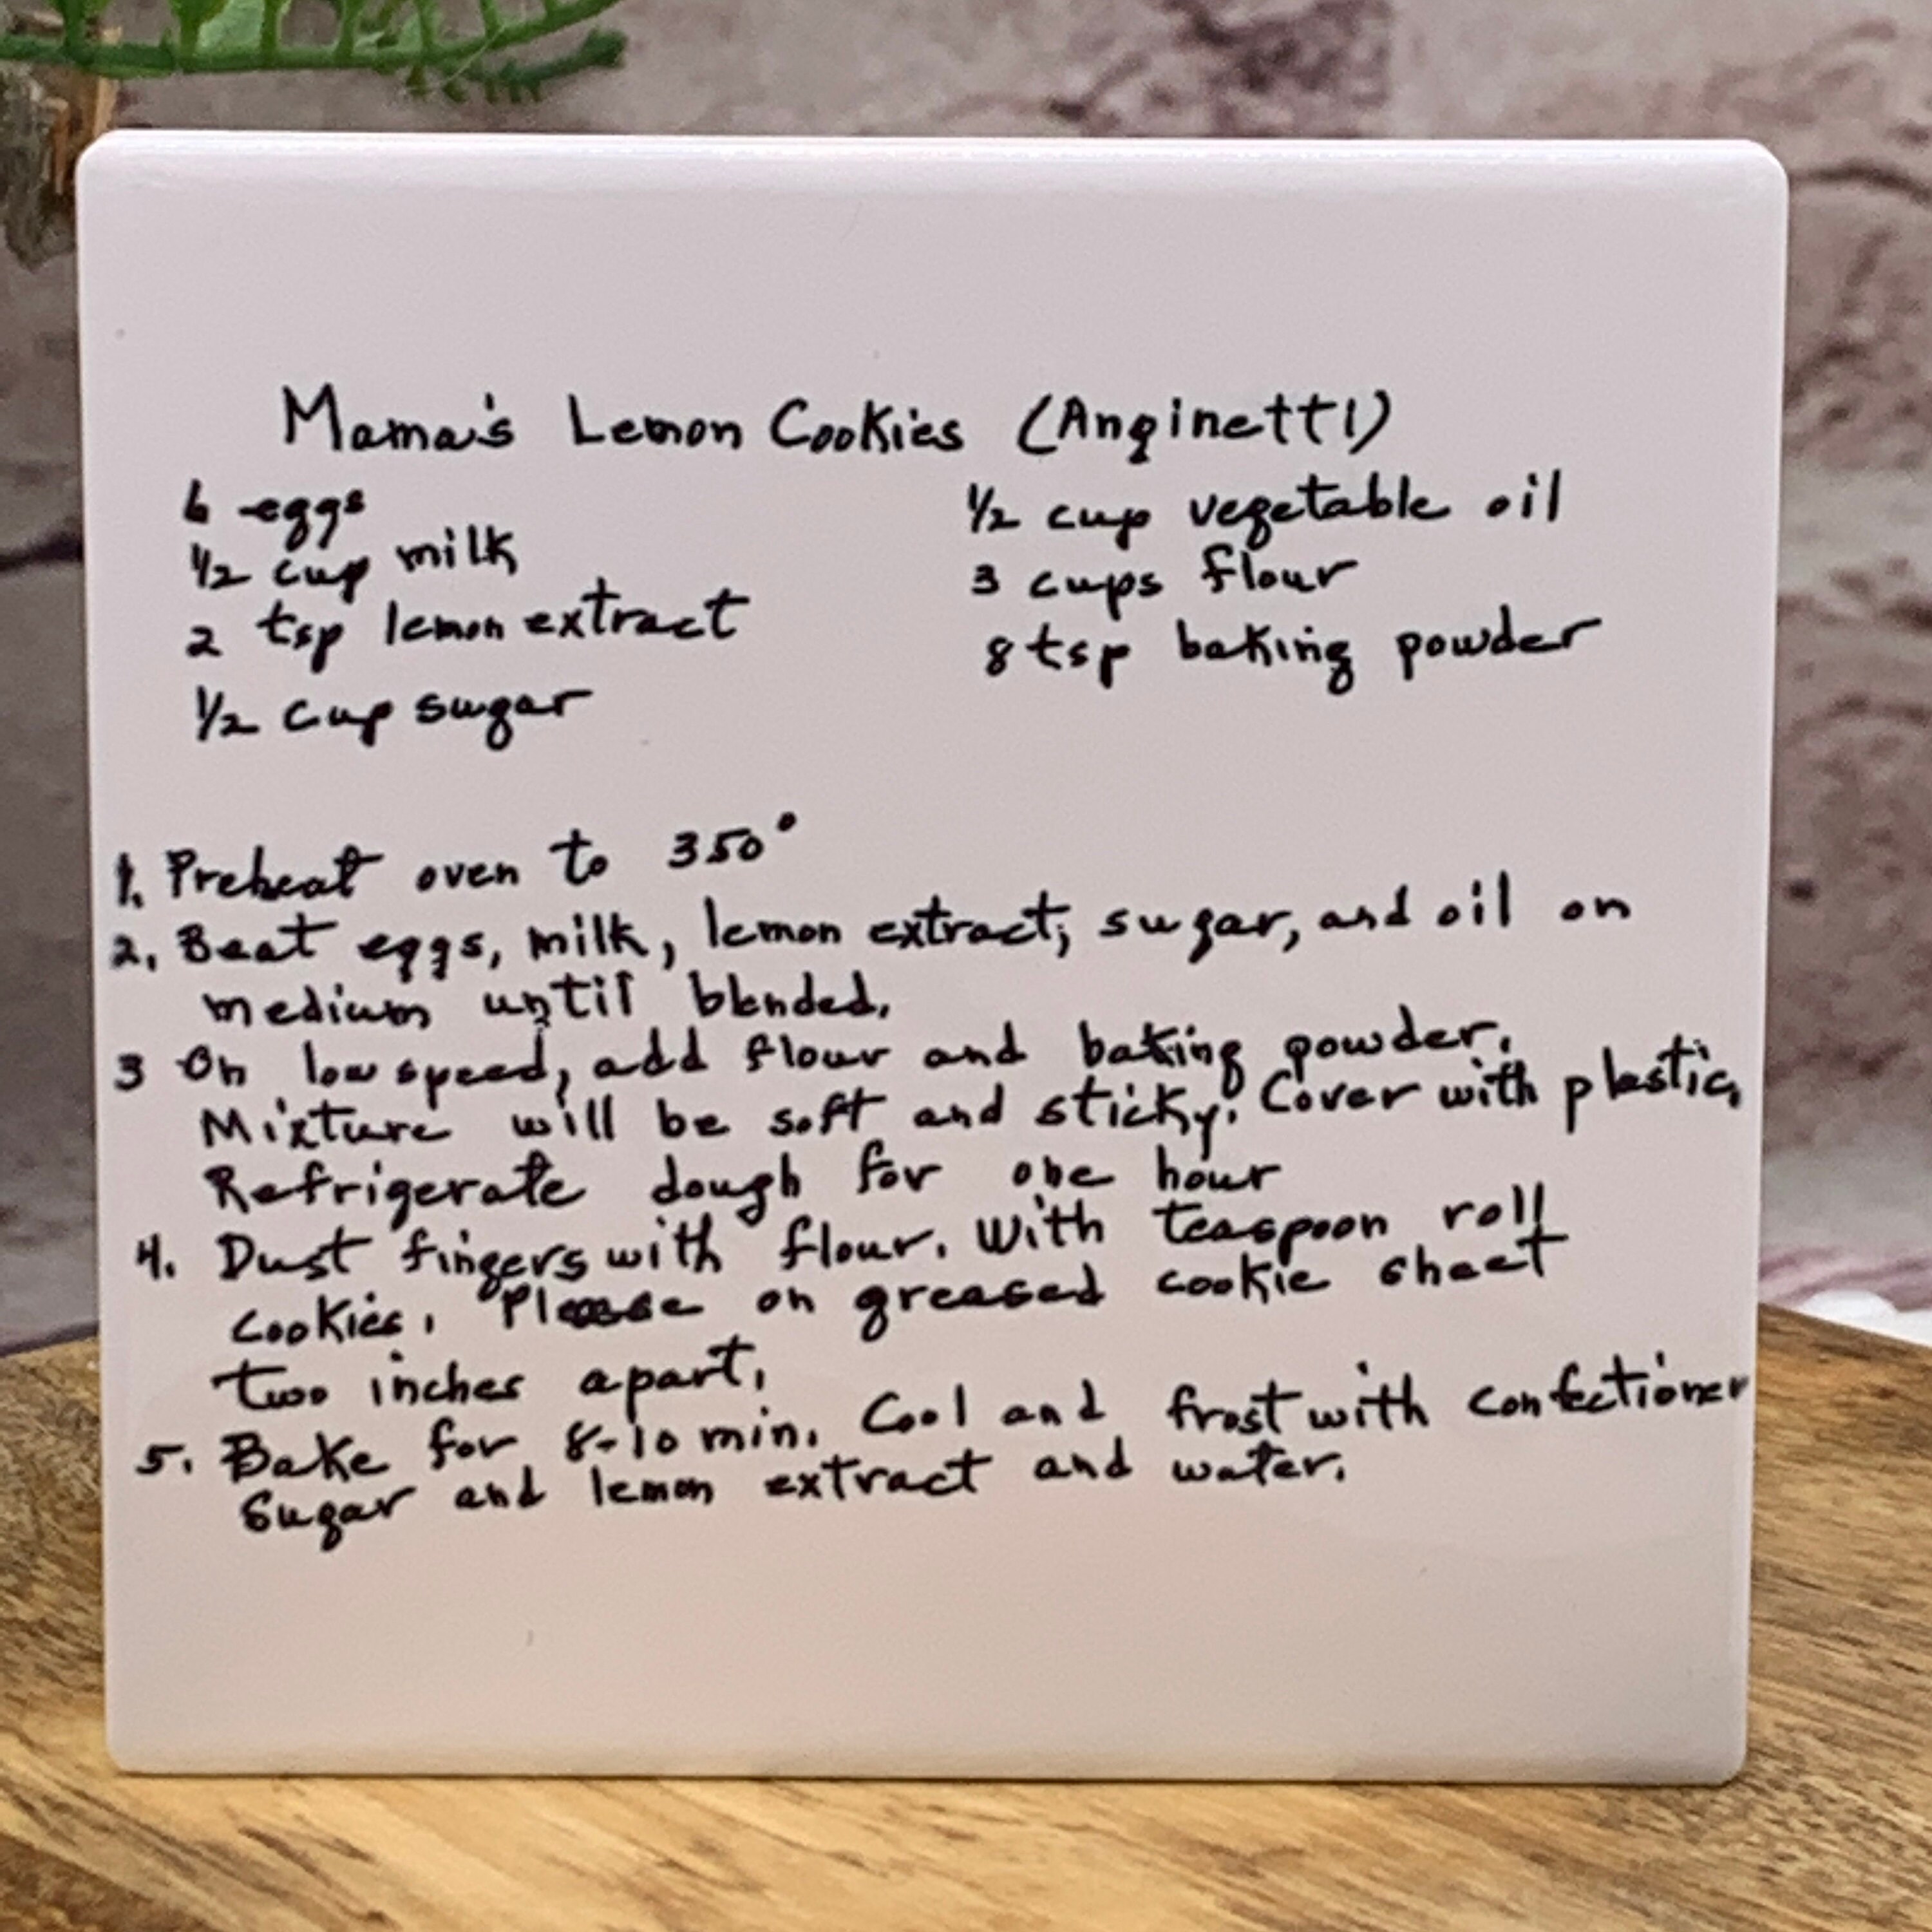 Mama's Lemon Cookies (Anginetti)
6 eggs
1/2 cup milk
2 tsp lemon extract
1/2 cup sugar
1/2 cup vegetable oil
3 cups flour
8 tsp baking powder
1. Preheat oven to 350°
2. Beat eggs, milk, lemon extract, sugar, and oil on
medium until blended.
3 On low speed, add flour and baking powder.
Mixture will be soft and sticky. Cover with plastic.
Refrigerate dough for one hour
4. Dust fingers with flour. With teaspoon roll
cookies. Please on greased cookie sheet
two inches apart.
5. Bake for 8-10 min. Cool and frost with confectioner
Sugar and lemon extract and water.